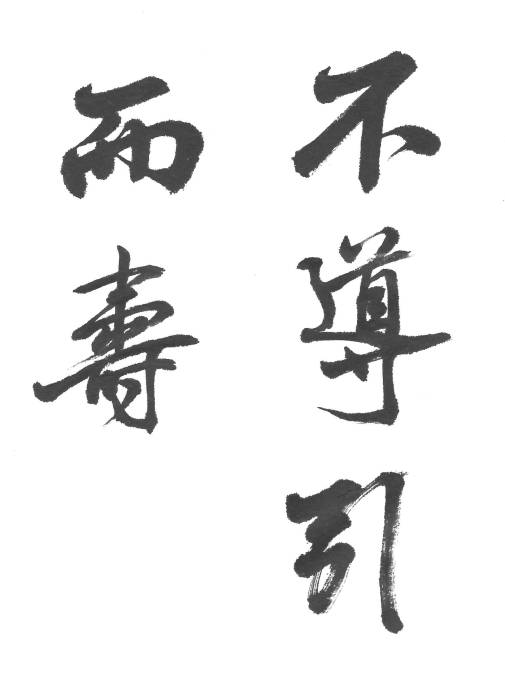 不導引
而壽